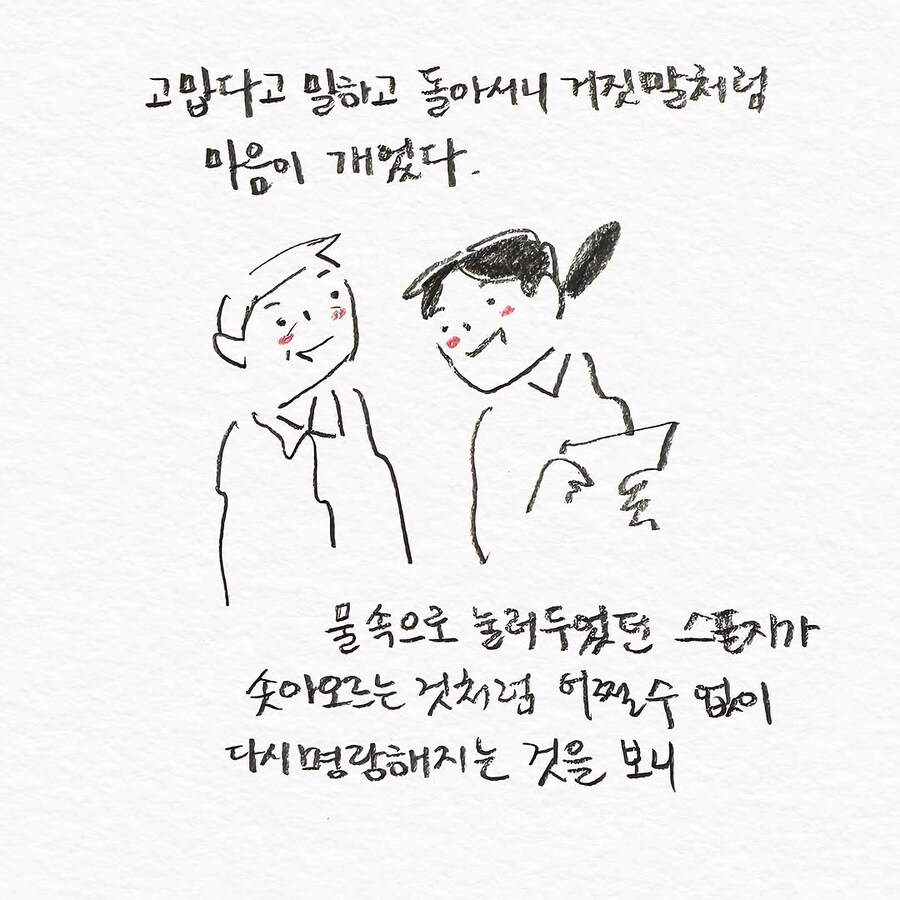 고맙다고 말하고 돌아서니 거짓말처럼
마음이 개었다.
물속으로 눌러두었던 스폰지가
솟아오르는 것처럼 어쩔수 없이
다시 명랑해지는 것을 보니